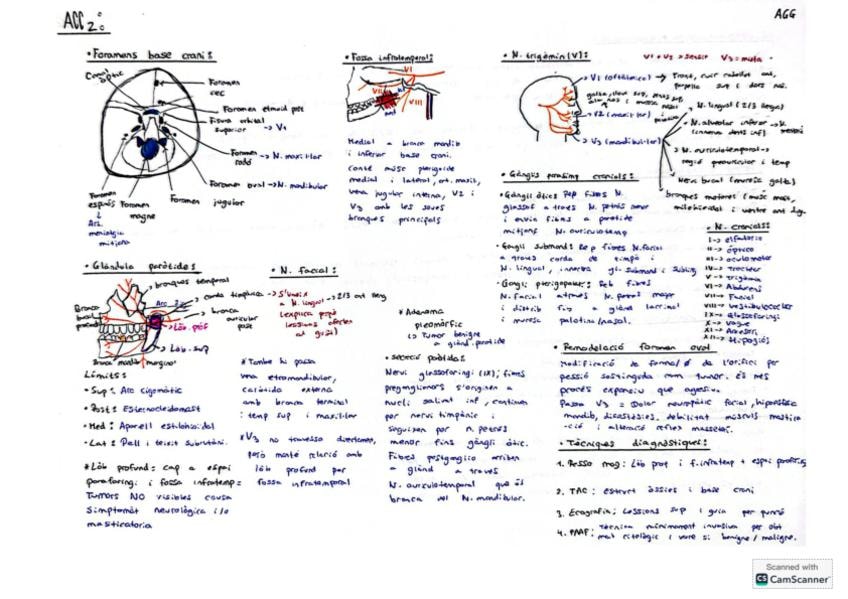 ACC 2:
AGG
• Foramens base crani:
Canal òptic
Foramen cec
Foramen etmoid post
Fisura orbital superior -> V1
Foramen rodó -> N. maxil·lar
Foramen oval -> N. mandibular
Foramen jugular
Foramen magne
Foramen espinós
↓
Art.
meningia
mitjana
• Fossa infratemporal:
VI
VII
VIII
Medial a branca mandib
i inferior base crani.
Conté músc pterigoide
medial i lateral, art. maxil,
vena jugular interna, V2 i
V3 amb les seves
branques principals
• N. trigèmin (V):
V1 + V2 -> sensit V3 = mixta
V1 (oftàlmic) ->
V2 (maxil·lar)
V3 (mandibular)
N. lingual (2/3 llengua)
N. alveolar inferior ->
(innerva dents inf)
N. auriculotemporal ->
regió preauricular i temp
Nervi bucal (mucosa galta)
branques motores (musc mast,
milohioidal i ventre ant dig.
• Ganglis parasimp cranials:
• Gangli òtics Rep fibres N.
glossof a través N. petrós menor
i envia fibres a paròtide
mitjans N. auriculotemp
• Gangli submand: Rep fibres N. facial
a través corda de timpà i
N. lingual, innerva gl. submand i subling
• Gangli pterigopalat: Reb fibs
N. facial através N. petrós major
i distrib fib a glànd lacrimal
i mucosa palatina/nasal.
• N. cranials:
I -> olfactori
II -> òptic
III -> oculomotor
IV -> troclear
V -> trigèmin
VI -> Abducens
VII -> Facial
VIII -> Vestibulococlear
IX -> Glossofaringi
X -> Vague
XI -> Accessori
XII -> Hipoglòs
• Glàndula paròtide:
branques temporal
corda timpànica
branca auricular post
Lòb. prof
Lòb. sup
Límits:
• Sup: Arc zigomàtic
• Post: Esternocleidomast
• Med: Aparell estilohioidal
• Lat: Pell i teixit subcutàni.
* Lòb profund: cap a espai
parafaring i fossa infratemp =
Tumors NO visibles causa
Simptomat neurològica i/o
masticatòria
• N. facial:
-> S'uneix
a N. lingual -> 2/3 ant lleng
* També hi passa
vena retromandibular,
caròtida externa
amb branca terminal
: temp sup i maxil·lar
* V3 no travessa directament,
però manté relació amb
lòb profund per
fossa infratemporal
* Adenoma
pleomòrfic
↳ Tumor benigne
a glànd. paròtide
• Secreció paròtida:
Nervi glossofaringi (IX); fibres
preganglionars s'originen a
nucli salivat inf, continuen
per nervi timpànic i
segueixen per n. petrós
menor fins gangli òtic.
Fibres postganglio arriben
a glànd a través
N. auriculotemporal que és
branca del N. mandibular.
• Remodelació foramen oval
Modificació de forma/Ø de l'orifici per
pressió sostinguda com tumor. És més
procés expansiu que agressiu.
Passa V3 = Dolor neuropàtic facial, hipoestèsia
mandib, disestèsies, debilitat músculs mastica
-ció i alteració reflex masseterí.
• Tècniques diagnòstiques:
1. Resso mag: Lòb prof i f. infratemp + espai parafaring
2. TAC: estruct òssies i base crani
3. Ecografia: Lessions sup i guia per punció
4. PAAF: Tècnica mínimament invasiva per obt
mat citològic i veure si benigne / maligne.
Scanned with
CS CamScanner